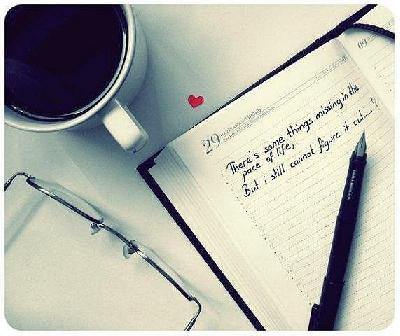 29
There's some things missing in the
pace of life,
But i still cannot figure it out......?